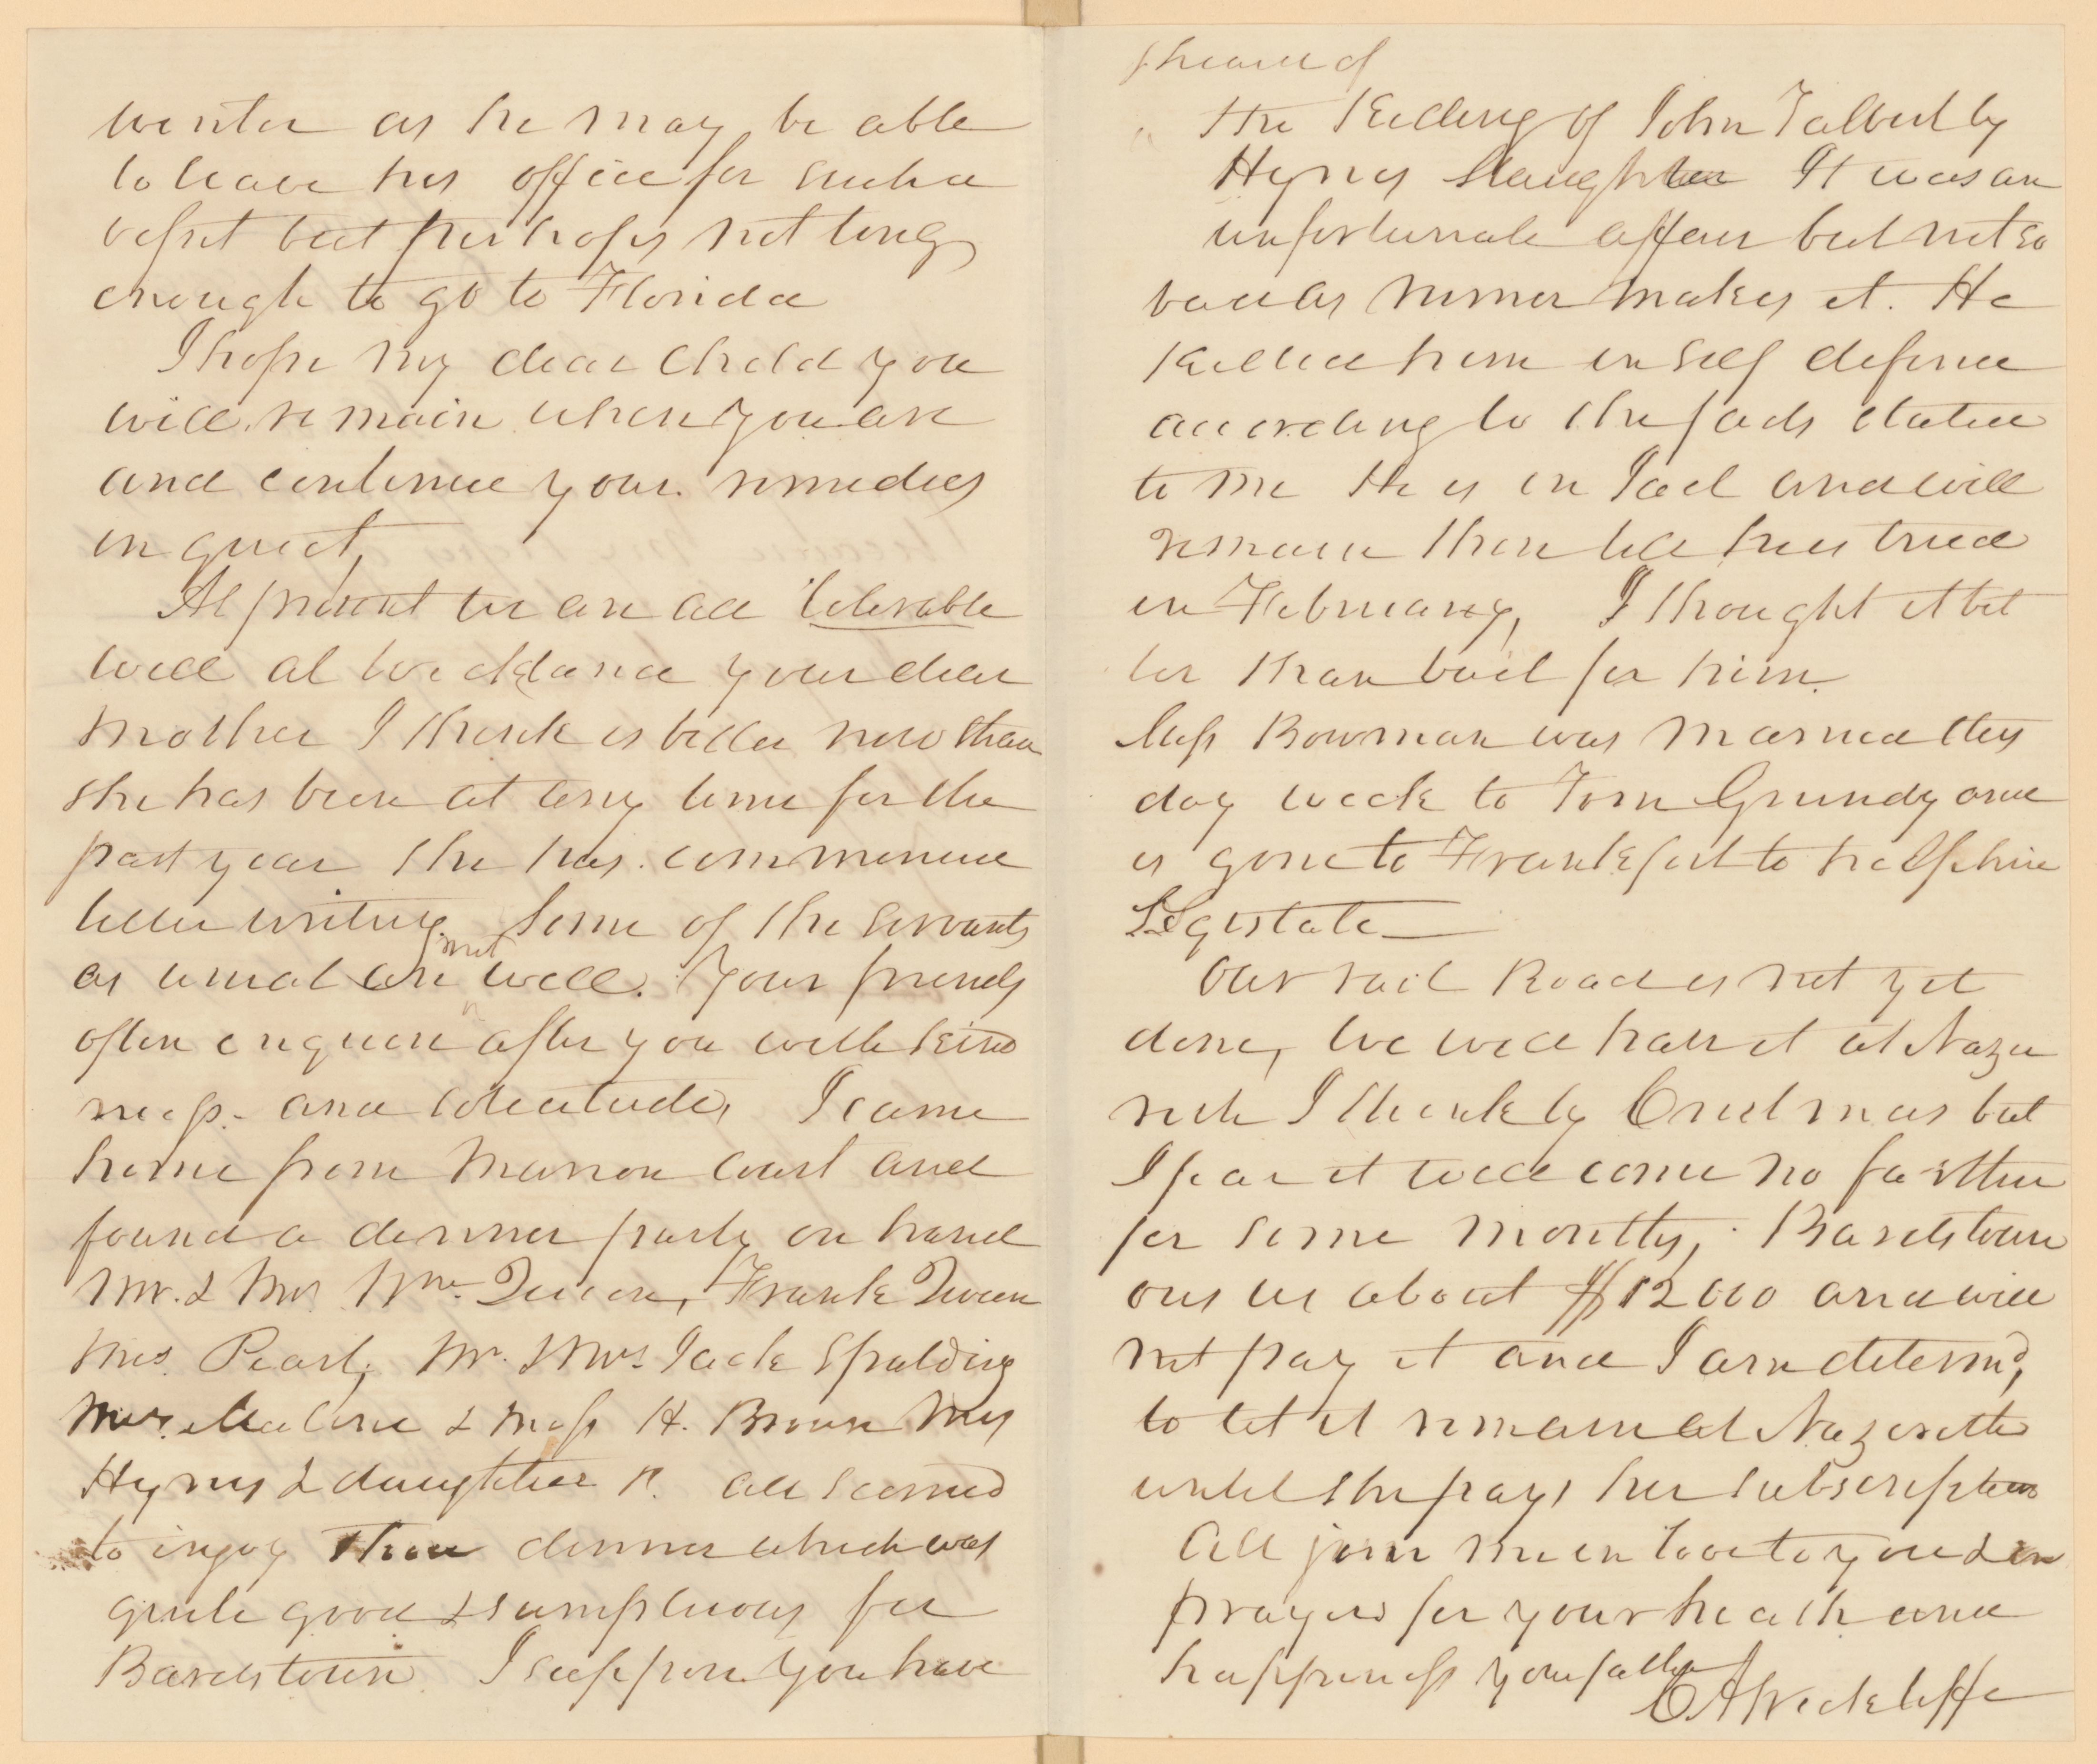 winter as he may be able
to leave his office for such a
visit but perhaps not long
enough to go to Florida
I hope my dear child you
will remain where you are
and continue your remedies
in quiet,
At present we are all tolerable
well at Wickland your dear
Mother I think is better now than
she has been at any time for the
past year She has commenced
letter writing. Some of the servants
as usual are not well. Your friends
often enquire after you with kind
ness- and solicitude, I came
home from Marion Court and
found a dinner party on hand
Mr. & Mrs. Wm. Queen, Frank Queen
Mrs. Pearl, Mr. & Mrs Jack Spalding
Mrs. Malone & Miss H. Brown Mrs
Hynes & daughter R. all seemed
to injoy their dinner which was
quite good & sumptuous for
Bardstown. I suppose you have
heard of
the Killing of John Talbert by
Hynes Slaughter It was an
unfortunate affair but not so
bad as rumor makes it. He
killed him in self defence
according to the facts stated
to me He is in Jail and will
remain there till he is tried
in February, I thought it bet
ter than bail for him.
Miss Bowman was married this
day week to Tom Grundy and
is gone to Frankfort to help him
Legistate
Our rail Road is not yet
done, We will have it at Naza
reth I think by Cristmas but
I fear it will come no farther
for some months, Bardstown
ows us about $12000 and will
not pay it and I am determd,
to let it remain at Nazareth
until she pays her subscription
All join me in love to you & in
prayers for your health and
happiness your father
C A Wickliffe